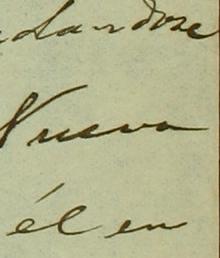 Nueva
él en